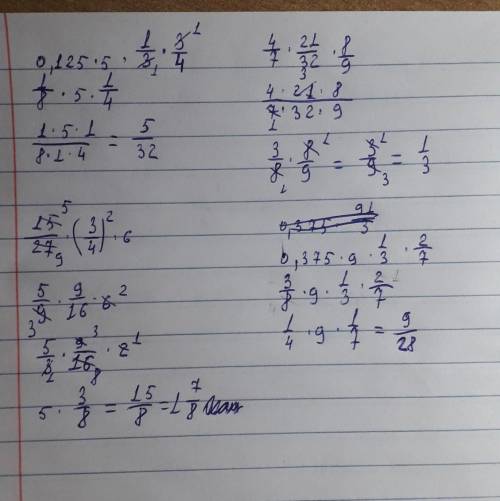 0,125 · 5 · 1/3 · 3/4 1
1
1/8 · 5 · 1/4
1·5·1/8·1·4 = 5/32
15/27 5 9 · (3/4)² · 6
5/9 · 9/16 · 6 2
3
5/3 · 9/16 3 8 · 2 1
1
5 · 3/8 = 15/8 = 1 7/8
4/7 · 21/32 · 8/9
3
4 · 21 · 8/7 · 32 · 9
1
3/8 · 8/9 1 = 3/9 1 3 = 1/3
1
0,375 · 9 · 1/3 · 2/7
3/8 · 9 · 1/3 · 2/7
1/4 · 9 · 1/7 = 9/28